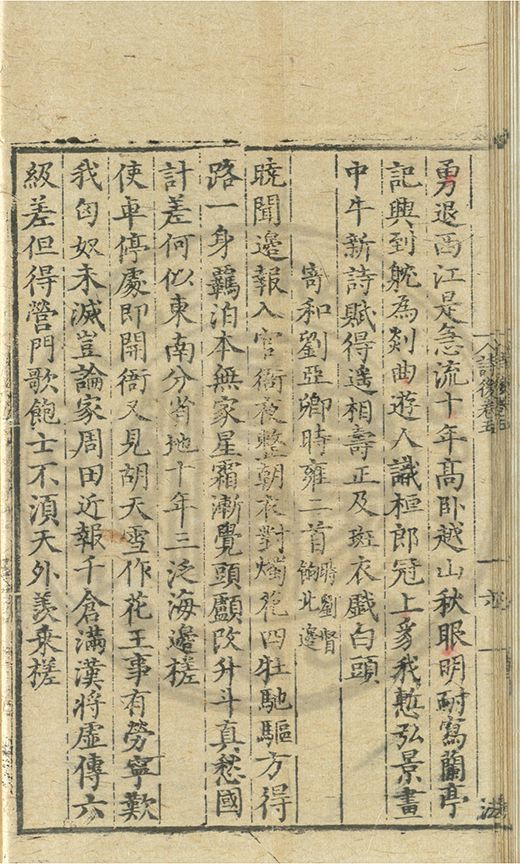 勇退西江是急流十年高卧越山秋眼明耐寫蘭亭
記興到躭為剡曲遊人識桓郎冠上豸我慙弘景畫
中牛新詩賦得遥相壽正及斑衣戲白頭
寄和劉亞卿時雍二首時劉督餉北邊
曉聞邊報入官衙夜整朝衣對燭花四牡馳驅方得
路一身羈泊本無家星霜漸覺頭顱改升斗真愁國
計差何似東南分省地十年三泛海邊槎
使車停處即開衙又見胡天雪作花王事有勞寧歎
我匈奴未滅豈論家周田近報千倉滿漢將虛傳六
級差但得營門歌飽士不湏天外羨乘槎